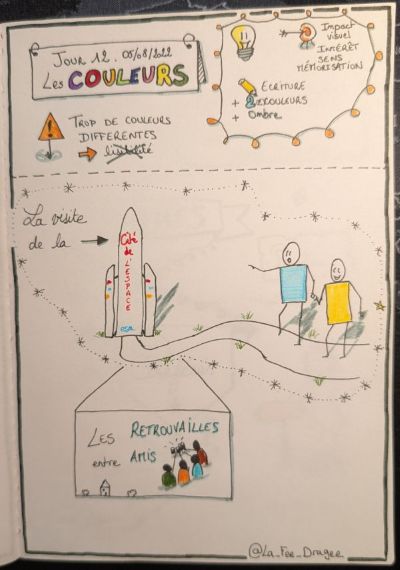 JOUR 12. 05/08/2022
Les COULEURS
Impact
visuel
INTÉRÊT
SENS
MÉMORISATION
ECRITURE
+ 2 COULEURS
+ Ombre
TROP DE COULEURS
DIFFERENTES
lisibilité
La visite
de la
Cité
de
L'ESPACE
esa
LES RETROUVAILLES
entre AMIS
@La_Fee_Dragee